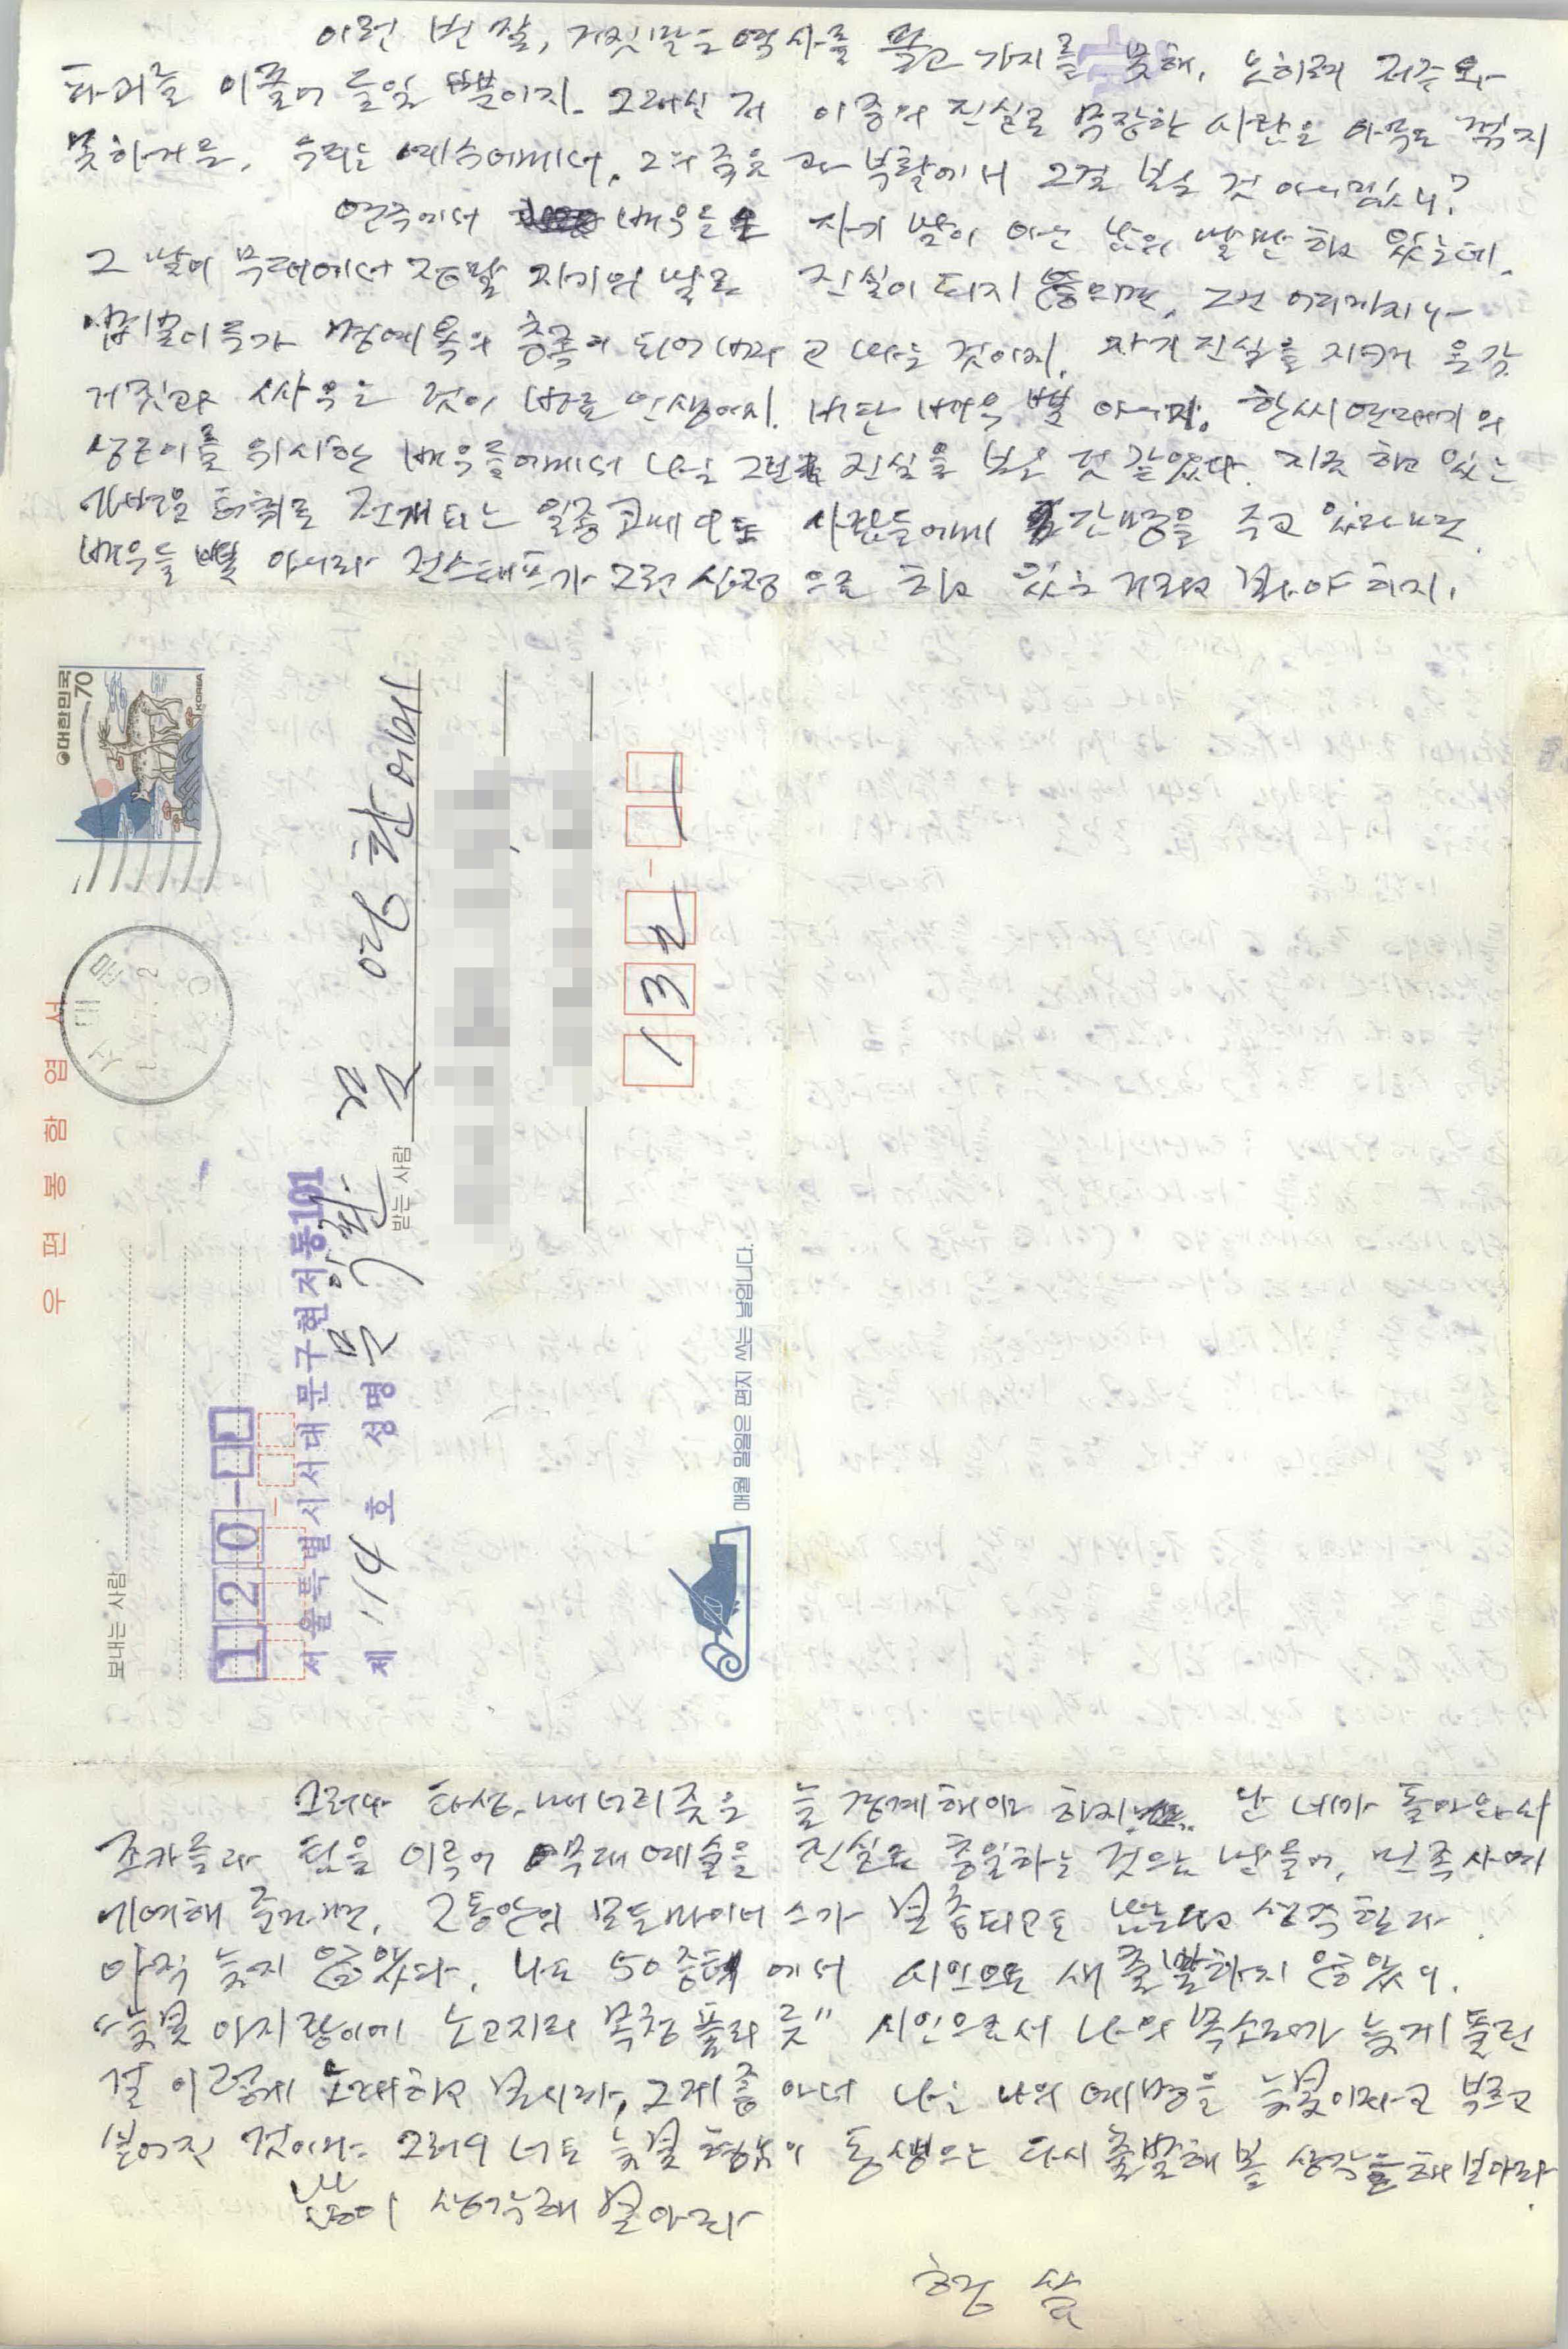 이런 번짓, 거짓말은 역사를 뚫고 가지를 못해, 오히려 저주와
파괴를 이끌어 들일 뿐이지. 그래선 저 이중의 진실로 무장한 사람은 아무도 꺾지
못하거든. 우리는 예수에게서, 그의 죽음과 부활에서 그걸 보는 것 아니겠니?
연극에서 배우들은 자기 말이 아닌 남의 말만 하고 있는데,
그 말이 무대에서 정말 자기의 말로 진실이 되지 않으면, 그건 어디까지나
밥벌이루가 명예욕의 종록이 되어버리고 마는 것이지. 자기 진실을 지키며 온갖
거짓과 싸우는 것이 바로 인생이지. 비단 배우 뿐 아니지. 한씨연대기의
배우들에게서 나는 그런 진실을 본 것 같았다. 지금 하고 있는
전개되는 사람들에게 감명을 주고 있다면,
배우들 뿐 아니라 전스태프가 그런 심정으로 하고 있는 거라고 보아야 하지.
대한민국 70
KOREA
우편봉함엽서
서대문
보내는 사람
120-
서울특별시서대문구현저동101
제 114 호 성명 문익환
받는 사람
문영환 아우
132-
매월 말일은 편지 쓰는 날입니다.
그러나 타성, 매너리즘은 늘 경계해야 하지. 난 네가 돌아와서
조카들과 팀을 이루어 무대예술을 진실로 통일하는 것으로 만들어, 민족사에
기여해 준다면, 그동안의 모든 마이너스가 보충되고도 남는다고 생각한다.
아직 늦지 않았다. 나도 50중턱에서 시인으로 새출발하지 않았니.
"늦봄 아지랑이에 노고지리 목청 풀리듯" 시인으로서 나의 목소리가 늦게 틀린
걸 이렇게 노래하고 보니까, 그게 좋아서 나는 나의 예명을 늦봄이라고 부르고
싶어진 것이다. 그러니 너도 늦봄 형님의 동생으로 다시 출발해 볼 생각을 해 보아라.
많이 생각해 보아라
형 씀